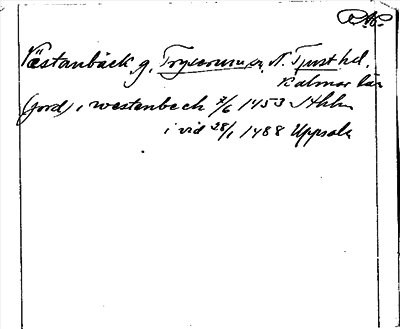 Västanbäck g. Tryserums sn. N. Tjust hd.
Kalmar län
(jord) i westenbech 7/6 1453 Sthlm
i vid 28/1 1488 Uppsala